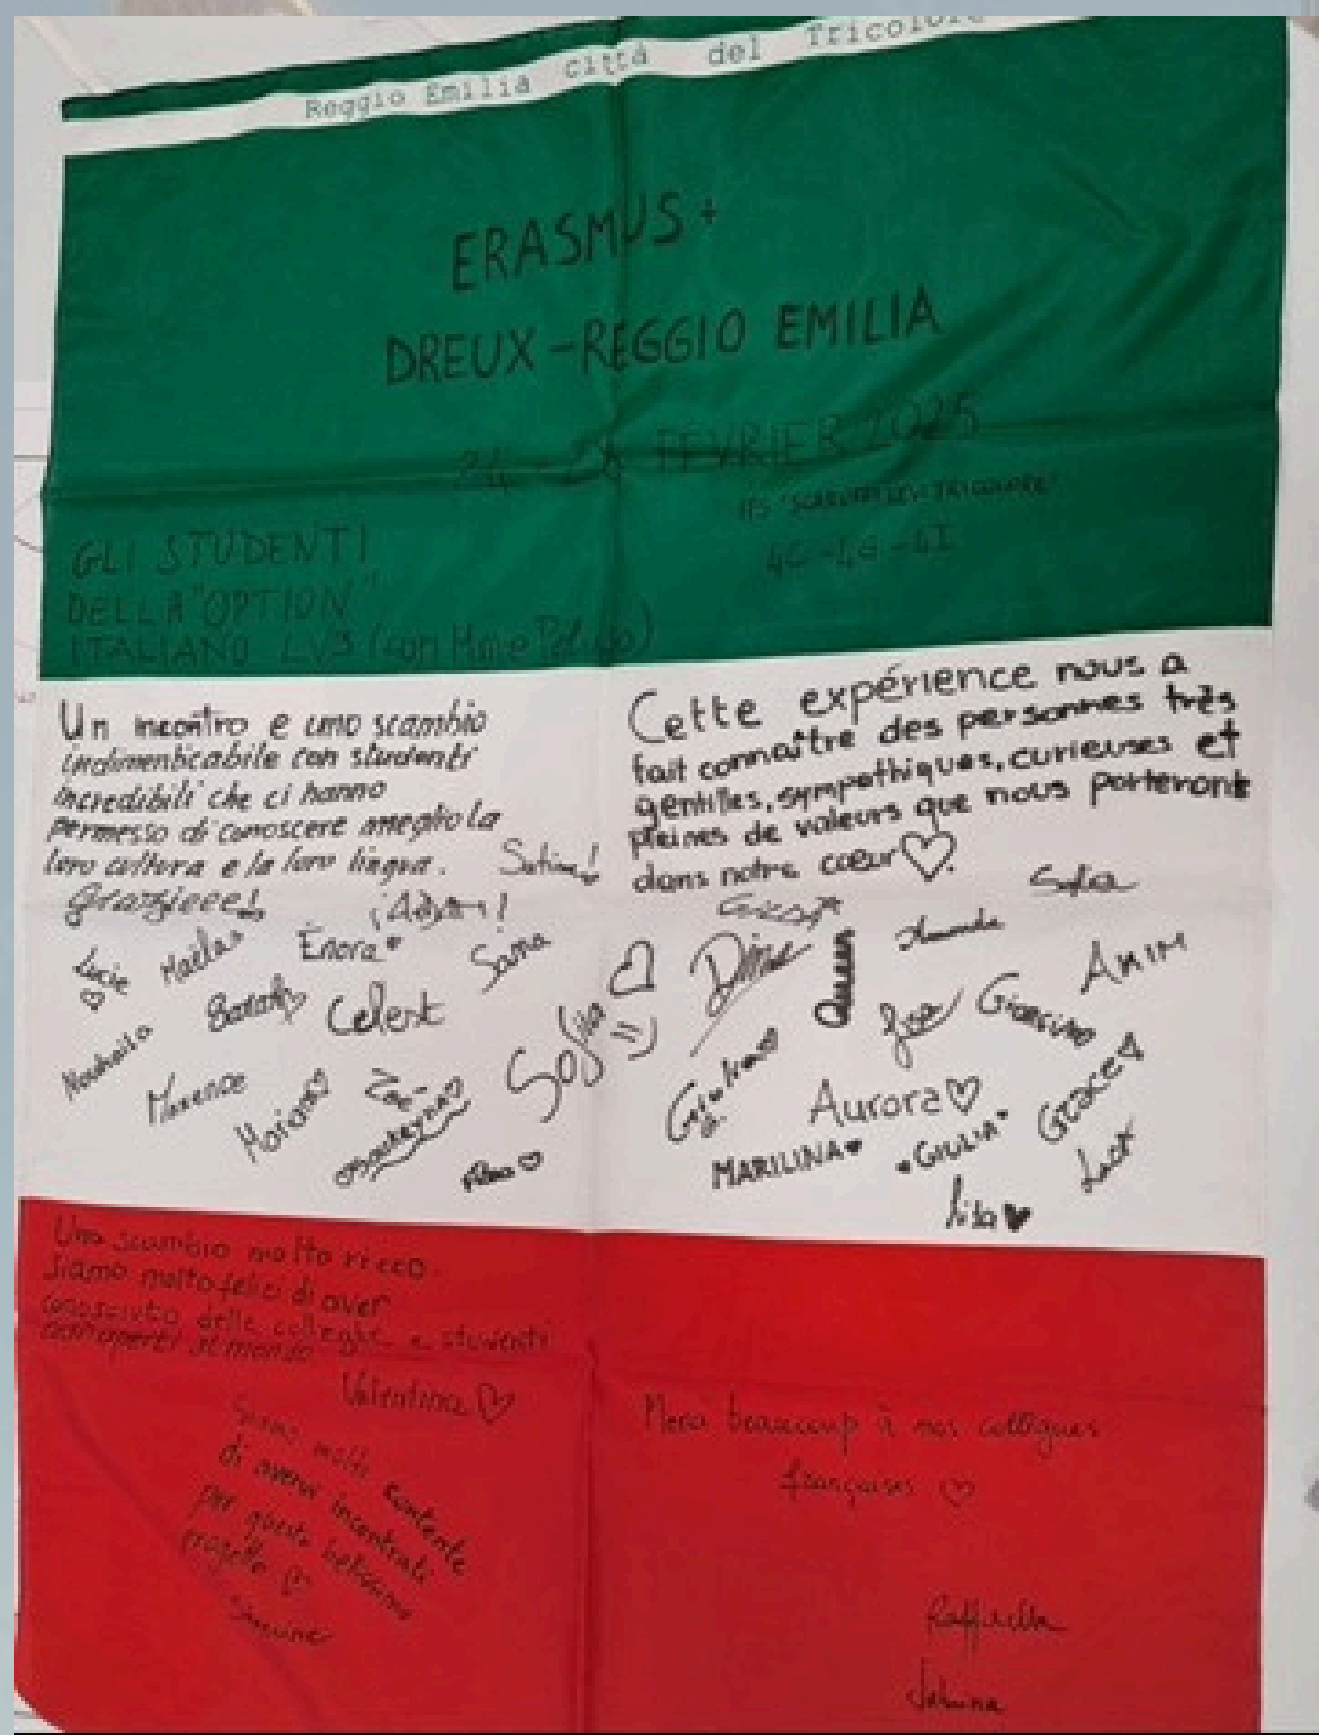 Reggio Emilia città del Tricolore
ERASMUS+
DREUX-REGGIO EMILIA
24-28 FÉVRIER 2025
IIS "SCARUFFI LEVI TRICOLORE"
4G
GLI STUDENTI
DELLA "OPTION"
ITALIANO LV3 (con Mme
Un incontro e uno scambio
indimenticabile con studenti
incredibili che ci hanno
permesso di conoscere meglio la
loro cultura e la loro lingua.
Grazieee!
Cette expérience nous a
fait connaître des personnes très
gentilles, sympathiques, curieuses et
pleines de valeurs que nous porterons
dans notre cœur ♡.
¡Adam!
Lucie ♡
Maëlas
Énora
Sana
Sarah ♡
Celest
Nouhaila
Maxence
Sofia ♡
Queen
Zoa
AMIM
Giulia ♡
Aurora ♡
Grace
MARILINA ♥
•GIULIA•
Lisa ♥
Uno scambio molto ricco.
Siamo molto felici di aver
conosciuto delle colleghe e studenti
aperti al mondo
Valentina ♡
Siamo molto contente
di avervi incontrati
per questo bellissimo
progetto ♡
Merci beaucoup à nos collègues
françaises ♡
Raffaella
Sabrina